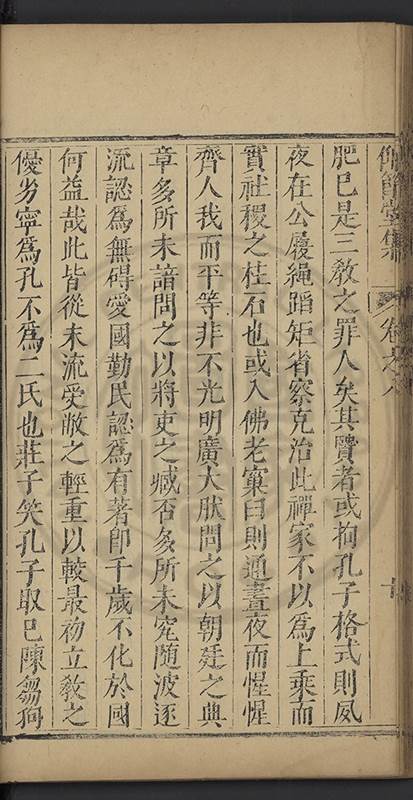 仰節堂集 卷之八
肥已是三教之罪人矣其賢者或拘孔子格式則夙
夜在公履繩蹈矩省察克治此禪家不以爲上乘而
實社稷之柱石也或入佛老窠臼則通晝夜而惺惺
齊人我而平等非不光明廣大肰問之以朝廷之典
章多所未諳問之以將吏之臧否多所未究隨波逐
流認爲無碍愛國勤民認爲有著卽千歲不化於國
何益哉此皆從末流受敝之輕重以較最初立教之
優劣寧爲孔不爲二氏也莊子笑孔子取已陳芻狗